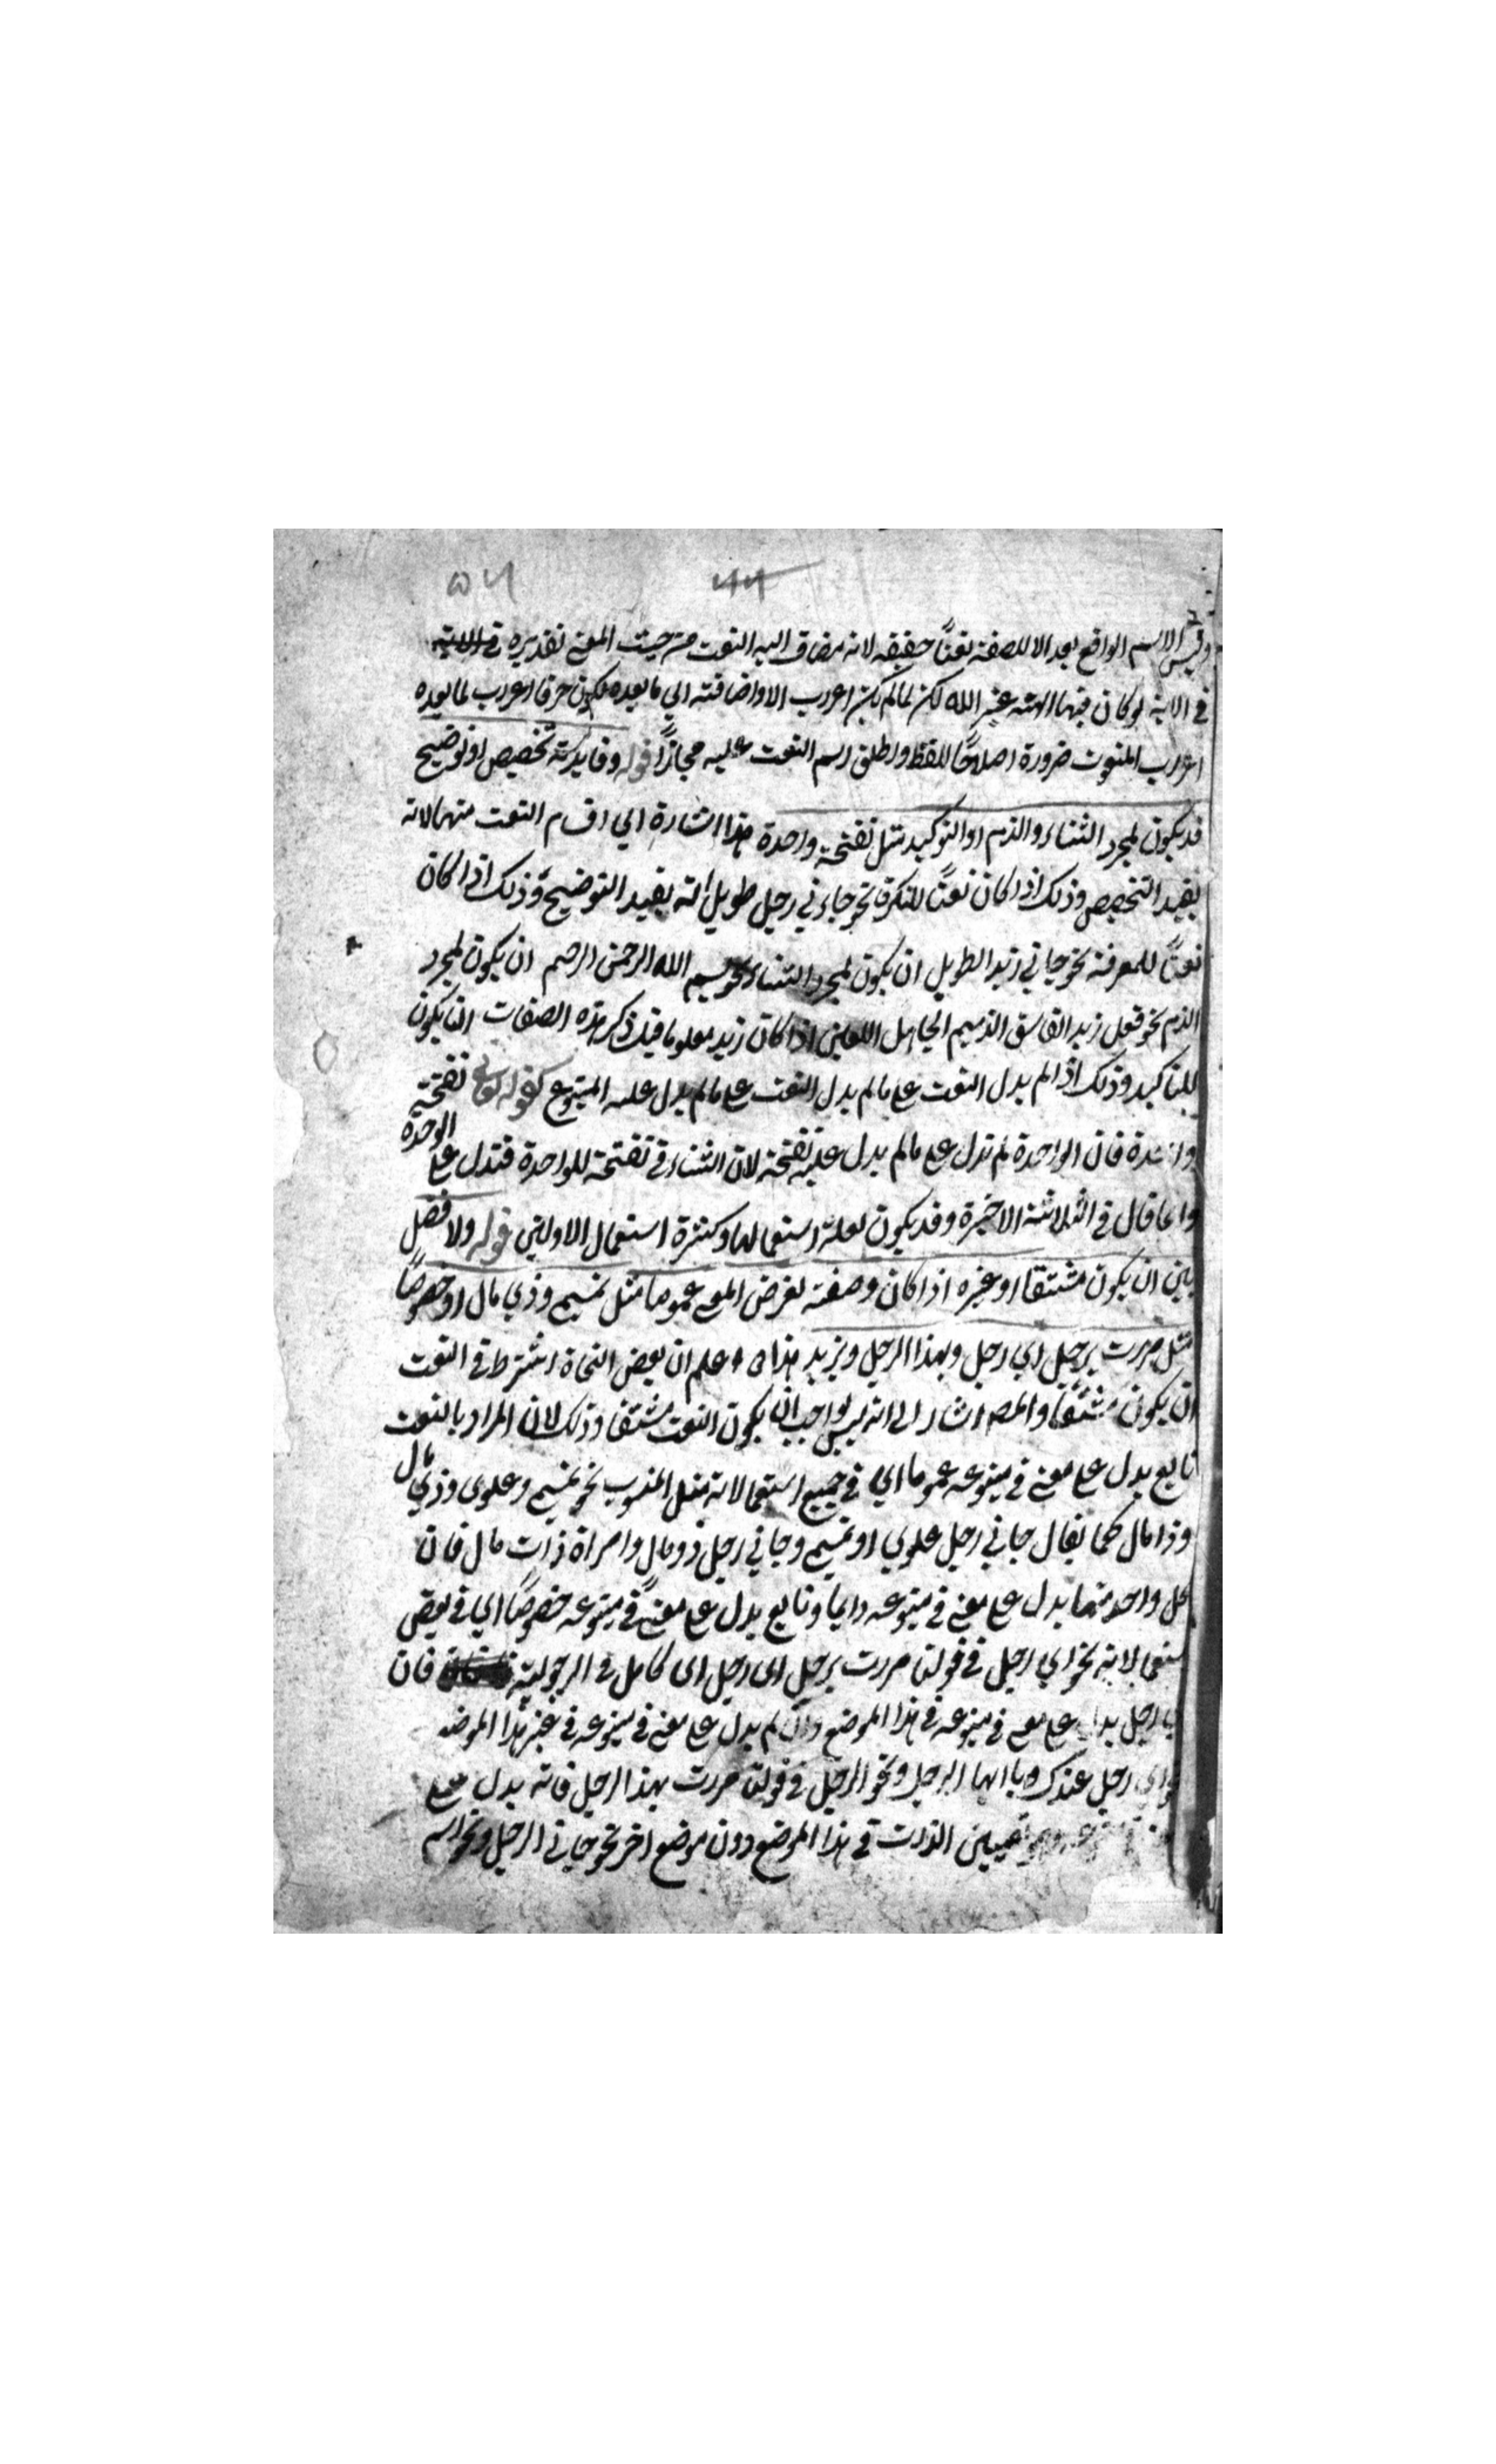 ۵۶ ۶۶
وليس الاسم الواقع بعد الا للصفة نعتًا حقيقة لانه مضاف اليه النعت من حيث المعنى تقديره
في الاية لو كان فيهما الهة غير الله لكن لما لم يكن اعراب الا واضافته الي ما بعده لكون حرفا اعرب ما بعده
اعراب المنعوت ضرورة اصلاحًا للفظ واطلق اسم النعت عليه مجازًا قوله وفايدته تخصيص او توضيح
قد يكون لمجرد الثناء والذم او التوكيد مثل نفخة واحدة هذا اشارة الي اقسام النعت منها لانه
يفيد التخصيص وذلك اذا كان نعتًا للنكرة نحو جاءني رجل طويل انه يفيد التوضيح وذلك اذا كان
نعتًا للمعرفة نحو جاني زيد الطويل ان يكون لمجرد الثناء نحو بسم الله الرحمن الرحيم ان يكون لمجرد
الذم نحو فعل زيد الفاسق الذميم الجاهل اللعين اذا كان زيد معلوما قبل ذكر هذه الصفات ان يكون
للتاكيد وذلك اذا لم يدل النعت على ما لم يدل النعت على ما لم يدل عليه المتبوع كقوله تعالى نفخة
واحدة فان الواحدة لم تدل على ما لم يدل عليه نفخة لان الثناء في نفخة للواحدة فتدل على الوحدة
وانما قال في الثلاثة الاخيرة وقد يكون لعلة استعمالها وكثرة استعمال الاولين قوله ولا فصل
بين ان يكون مشتقا او غيره اذا كان وصفه لغرض المعنى عموما مثل تميمي وذي مال او خصوصًا
مثل مررت برجل اي رجل وبهذا الرجل وبزيد هذا اعلم ان بعض النحاة اشترط في النعت
ان يكون مشتقًا والمص اشار الى انه ليس بواجب ان يكون النعت مشتقا وذلك لان المراد بالنعت
تابع يدل على معنى في متبوعه عموما اي في جميع استعمالاته مثل المنسوب نحو تميمي وعلوي وذي مال
وذا مال كما يقال جاني رجل علوي او تميمي وجاني رجل ذو مال وامراة ذات مال فان
كل واحد منهما يدل على معنى في متبوعه دايما وتابع يدل على معنى في متبوعه خصوصًا اي في بعض
استعمالاته نحو اي رجل في قولك مررت برجل اي رجل اي كامل في الرجولية فان
اي رجل يدل على معنى في متبوعه في هذا الموضع وان لم يدل على معنى في متبوعه في غير هذا الموضع
نحو اي رجل عندك ويا ايها الرجل ونحو الرجل في قولك مررت بهذا الرجل فانه يدل على
متبوعه وهو تعيين الذات في هذا الموضع دون موضع اخر نحو جاني الرجل ونحو اسم